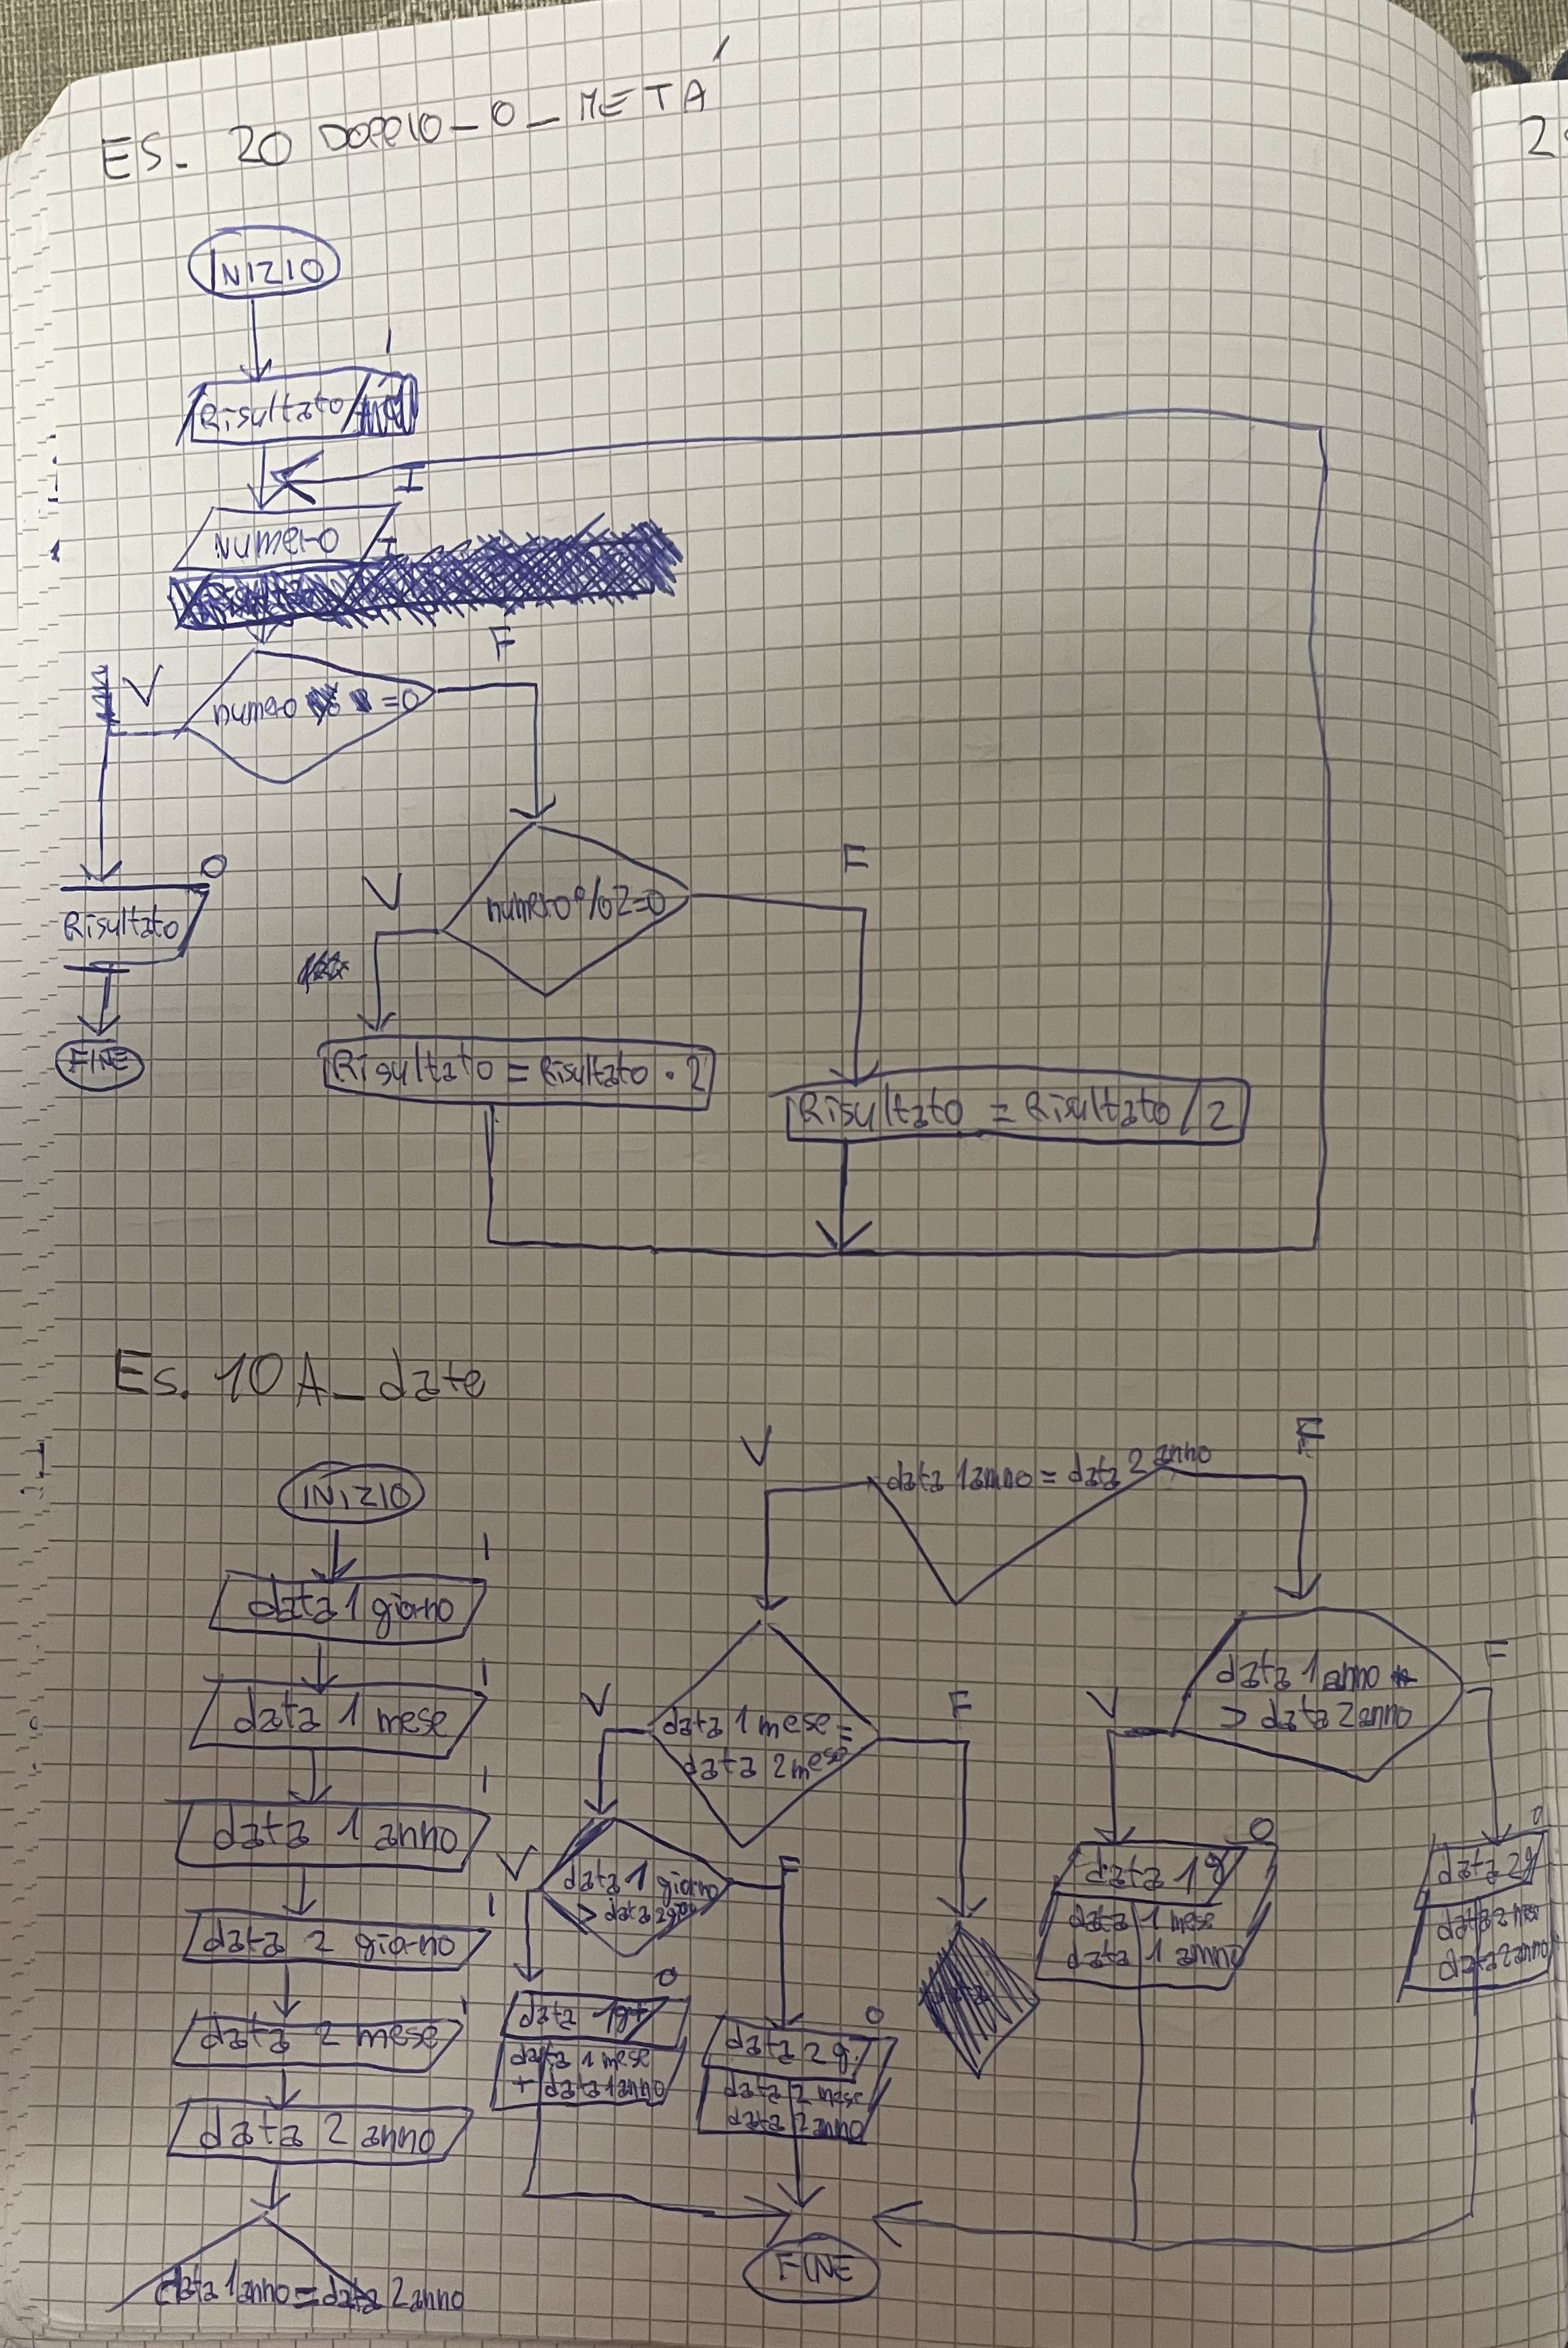 ES. 20 DOPPIO_O_METÁ
INIZIO
I
Risultato
I
numero
I
V
F
numero =0
O
Risultato
FINE
V
F
numero%2=0
Risultato = Risultato · 2
Risultato = Risultato / 2
Es. 10 A_date
INIZIO
I
data 1 giorno
I
data 1 mese
I
data 1 anno
I
data 2 giorno
I
data 2 mese
data 2 anno
data 1anno = data 2anno
V
F
data 1anno = data 2 anno
V
F
data 1 mese =
data 2 mese
V
F
data 1 giorno
> data 2
O
data 1g+
data 1 mese
+ data 1anno
O
data 2 g.
data 2 mese
data 2 anno
V
F
data 1 anno
> data 2anno
O
data 1 g
data 1 mese
data 1 anno
O
data 2g
data 2 mese
data 2anno
FINE
2